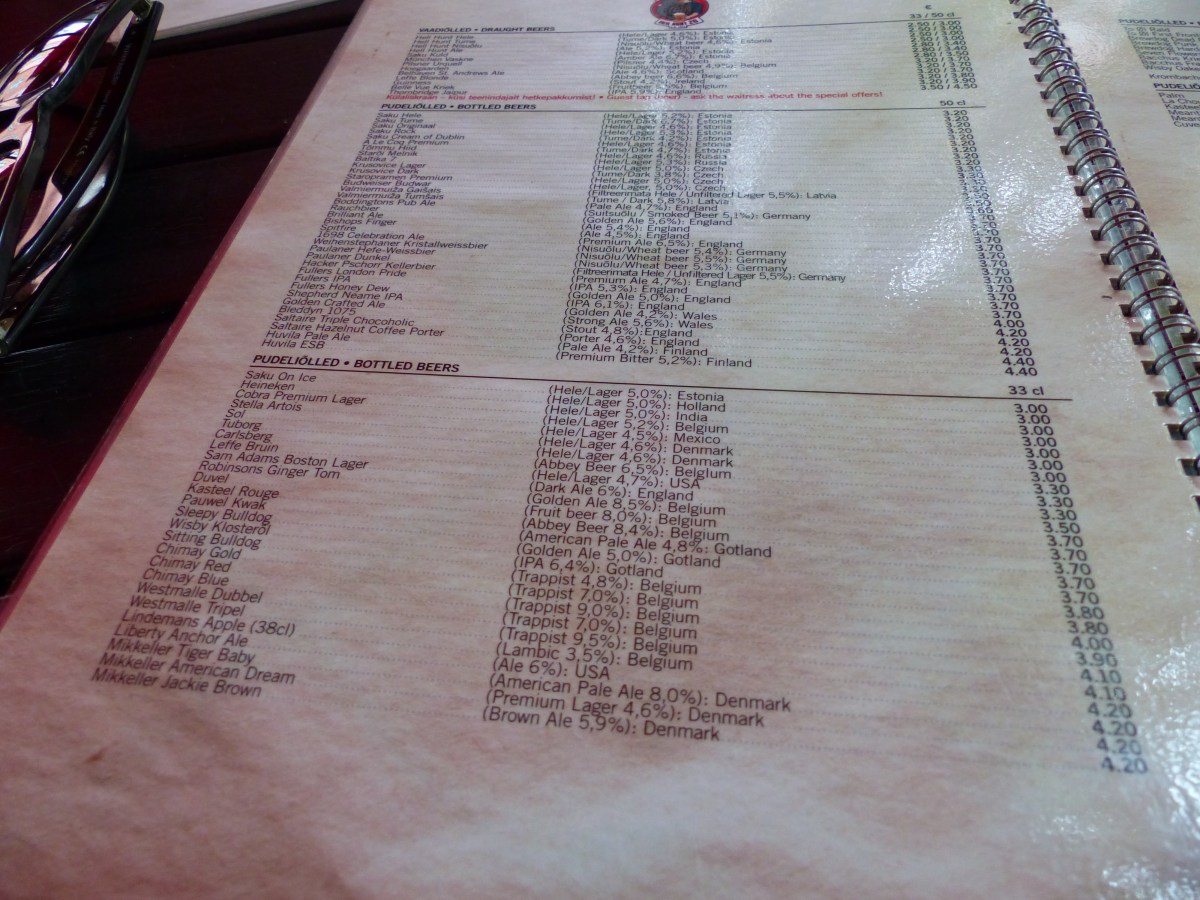 33 / 50 cl
VAADIÕLLED • DRAUGHT BEERS
Hell Hunt Hele (Hele/Lager 4,6%): Estonia 2.50 / 3.00
Hell Hunt Tume
Hell Hunt Nisuõlu
Hell Hunt Ale
Saku Kuld
München Vaskne
Pilsner Urquell
Hoegaarden Belgium
Belhaven St. Andrews Ale (Ale 4,6%): Scotland
Leffe Blonde Belgium
Guinness Ireland
Belle Vue Kriek Belgium
Thornbridge Jaipur (IPA 5,9%): England 3.50 / 4.50
Külalisõlled - küsi teenindajalt hetkepakkumist! • Guest tap (time) - ask the waitress about the special offers!
PUDELIÕLLED • BOTTLED BEERS 50 cl
Saku Hele (Hele/Lager 5,2%): Estonia 3.20
Saku Tume (Tume/Dark 6,7%): Estonia 3.20
Saku Originaal (Hele/Lager 4,6%): Estonia 3.20
Saku Rock (Hele/Lager 5,3%): Estonia 3.20
Saku Cream of Dublin (Tume/Dark 4,2%): Estonia 3.20
A Le Coq Premium (Hele/Lager 4,6%): Estonia 3.20
Tõmmu Hiid (Tume/Dark 4,7%): Estonia 3.20
Starõi Melnik (Hele/Lager 4,6%): Russia
Baltika 7 (Hele/Lager 5,3%): Russia
Krusovice Lager (Hele/Lager 5,0%): Czech
Krusovice Dark (Tume/Dark 3,8%): Czech
Staropramen Premium (Hele/Lager 5,0%): Czech
Budweiser Budwar (Hele/Lager 5,0%): Czech
Valmiermuiža Gaišais (Filtreerimata Hele / Unfiltered Lager 5,5%): Latvia
Valmiermuiža Tumšais (Tume / Dark 5,8%): Latvia
Boddingtons Pub Ale (Pale Ale 4,7%): England
Rauchbier (Suitsuõlu / Smoked Beer 5,1%): Germany
Brilliant Ale (Golden Ale 5,6%): England
Bishops Finger (Ale 5,4%): England
Spitfire (Ale 4,5%): England
1698 Celebration Ale (Premium Ale 6,5%): England 3.70
Weihenstephaner Kristallweissbier (Nisuõlu/Wheat beer 5,4%): Germany 3.70
Paulaner Hefe-Weissbier (Nisuõlu/Wheat beer 5,5%): Germany 3.70
Paulaner Dunkel (Nisuõlu/Wheat beer 5,3%): Germany 3.70
Hacker Pschorr Kellerbier (Filtreerimata Hele / Unfiltered Lager 5,5%): Germany 3.70
Fullers London Pride (Premium Ale 4,7%): England 3.70
Fullers IPA (IPA 5,3%): England 3.70
Fullers Honey Dew (Golden Ale 5,0%): England 3.70
Shepherd Neame IPA (IPA 6,1%): England 3.70
Golden Crafted Ale (Golden Ale 4,2%): Wales 3.70
Bleddyn 1075 (Strong Ale 5,6%): Wales 4.00
Saltaire Triple Chocoholic (Stout 4,8%): England 4.20
Saltaire Hazelnut Coffee Porter (Porter 4,6%): England 4.20
Huvila Pale Ale (Pale Ale 4,2%): Finland 4.40
Huvila ESB (Premium Bitter 5,2%): Finland 4.40
PUDELIÕLLED • BOTTLED BEERS 33 cl
Saku On Ice (Hele/Lager 5,0%): Estonia 3.00
Heineken (Hele/Lager 5,0%): Holland 3.00
Cobra Premium Lager (Hele/Lager 5,0%): India 3.00
Stella Artois (Hele/Lager 5,2%): Belgium 3.00
Sol (Hele/Lager 4,5%): Mexico 3.00
Tuborg (Hele/Lager 4,6%): Denmark 3.00
Carlsberg (Hele/Lager 4,6%): Denmark 3.00
Leffe Bruin (Abbey Beer 6,5%): Belgium 3.30
Sam Adams Boston Lager (Hele/Lager 4,7%): USA 3.30
Robinsons Ginger Tom (Dark Ale 6%): England 3.30
Duvel (Golden Ale 8,5%): Belgium 3.50
Kasteel Rouge (Fruit beer 8,0%): Belgium 3.70
Pauwel Kwak (Abbey Beer 8,4%): Belgium 3.70
Sleepy Bulldog (American Pale Ale 4,8%: Gotland 3.70
Wisby Klosteröl (Golden Ale 5,0%): Gotland 3.70
Sitting Bulldog (IPA 6,4%): Gotland 3.70
Chimay Gold (Trappist 4,8%): Belgium 3.80
Chimay Red (Trappist 7,0%): Belgium 3.80
Chimay Blue (Trappist 9,0%): Belgium 4.00
Westmalle Dubbel (Trappist 7,0%): Belgium 3.90
Westmalle Tripel (Trappist 9,5%): Belgium 4.10
Lindemans Apple (38cl) (Lambic 3,5%): Belgium 4.10
Liberty Anchor Ale (Ale 6%): USA 4.20
Mikkeller Tiger Baby (American Pale Ale 8,0%): Denmark 4.20
Mikkeller American Dream (Premium Lager 4,6%): Denmark 4.20
Mikkeller Jackie Brown (Brown Ale 5,9%): Denmark 4.20